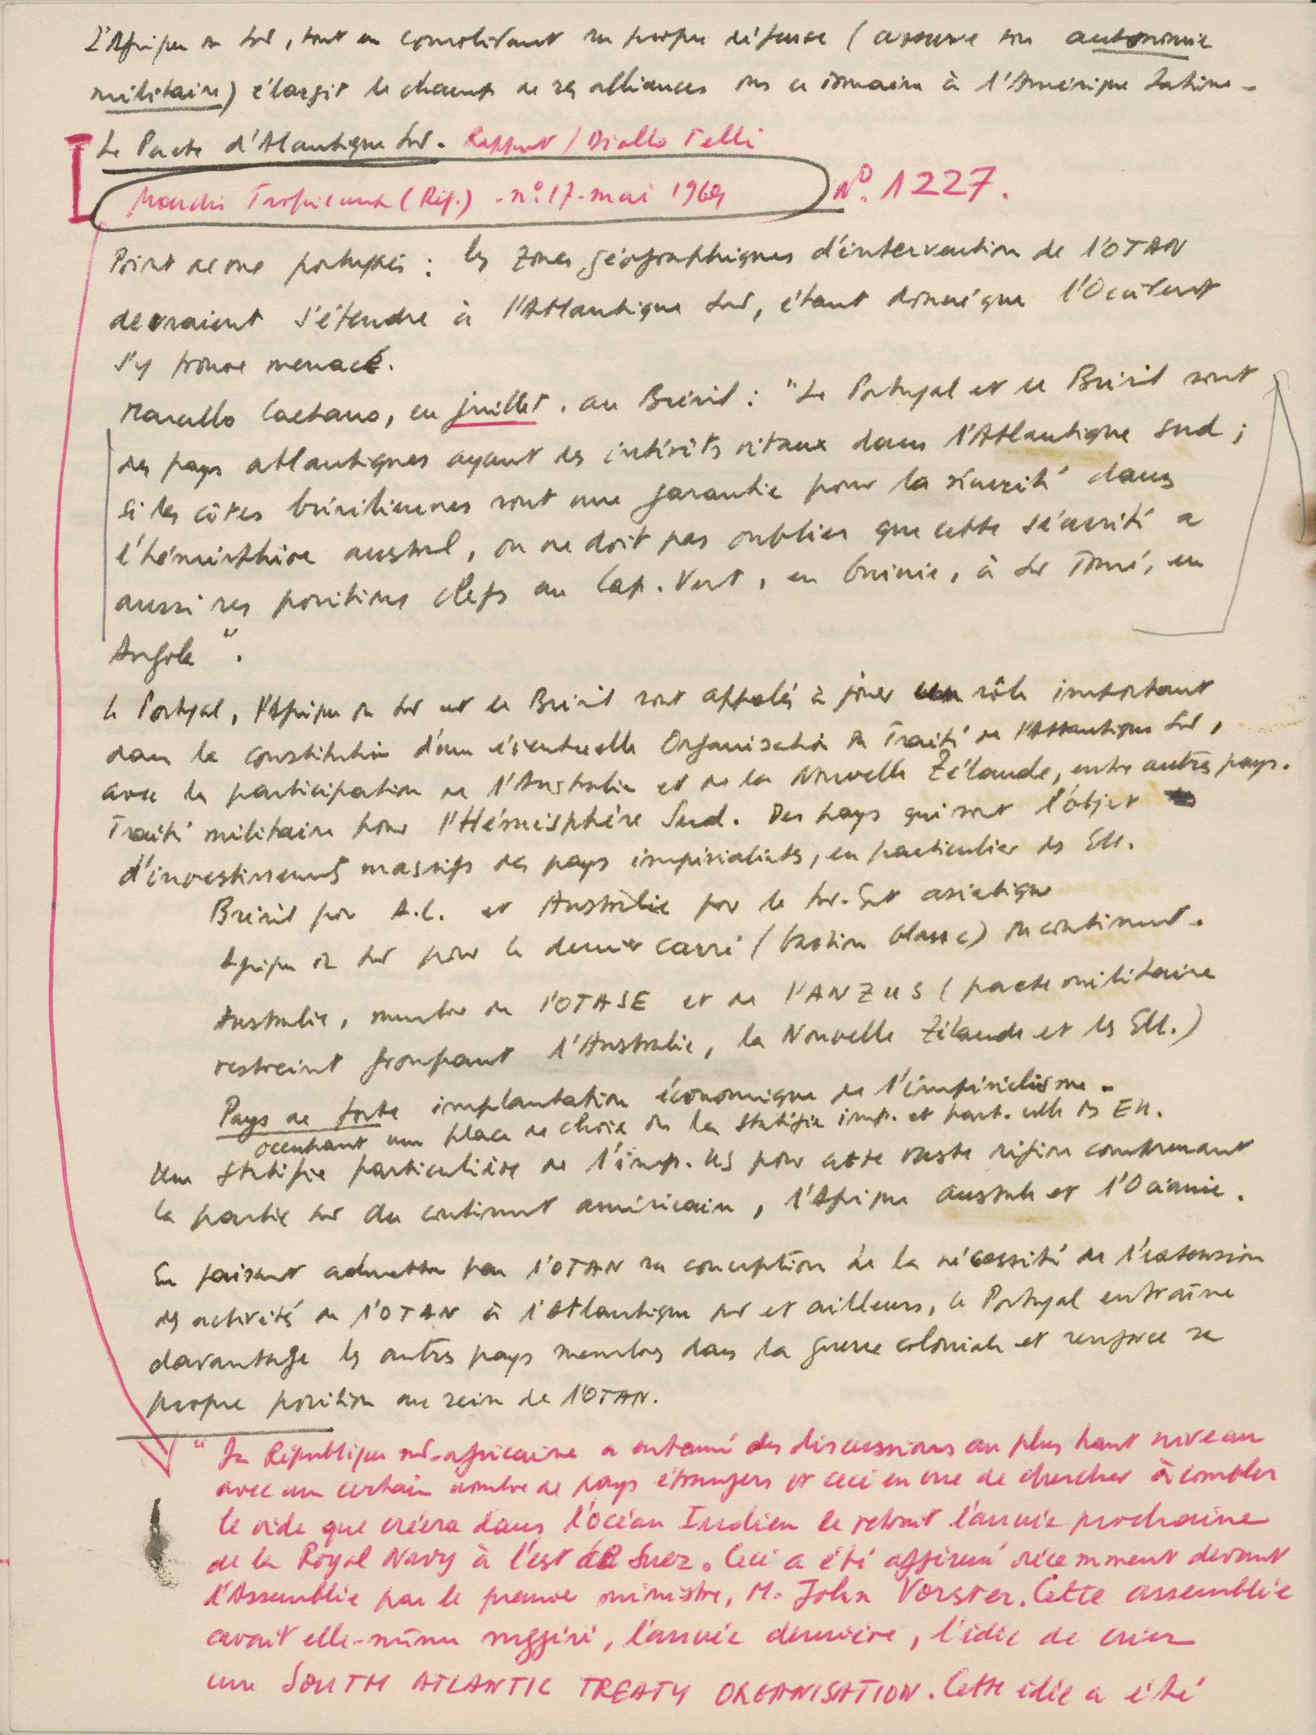 L'Afrique du Sud, tout en consolidant sa propre défense (assure son autonomie
militaire) élargit le champ de ses alliances ds ce domaine à l'Amérique Latine -
Le Pacte d'Atlantique Sud. Rapport / Diallo Telli
Marchés Tropicaux (Réf.) - n° 17 - mai 1969 N° 1227.
Point de vue portugais : les zones géographiques d'intervention de l'OTAN
devraient s'étendre à l'Atlantique Sud, étant donné que l'Occident
s'y trouve menacé.
Marcello Caetano, en juillet, au Brésil : "Le Portugal et le Brésil sont
des pays atlantiques ayant des intérêts vitaux dans l'Atlantique Sud ;
si les côtes brésiliennes sont une garantie pour la sécurité dans
l'hémisphère austral, on ne doit pas oublier que cette sécurité a
aussi ses positions clefs au Cap-Vert, en Guinée, à São Tomé, en
Angola".
Le Portugal, l'Afrique du Sud et le Brésil sont appelés à jouer un rôle important
dans la constitution d'une éventuelle Organisation du Traité de l'Atlantique Sud,
avec la participation de l'Australie et de la Nouvelle Zélande, entre autres pays.
Traité militaire pour l'Hémisphère Sud. Des pays qui sont l'objet
d'investissements massifs des pays impérialistes, en particulier des EU.
Brésil pour A.L. et Australie pour le Sud-Est asiatique
Afrique du Sud pour le dernier carré (bastion blanc) du continent.
Australie, membre de l'OTASE et de l'ANZUS (pacte militaire
restreint groupant l'Australie, la Nouvelle Zélande et les EU.)
Pays de forte implantation économique de l'impérialisme -
occupant une place de choix ds la stratégie imp. et part. celle des EU.
Une stratégie particulière de l'imp. US pour cette vaste région comprenant
la partie sud du continent américain, l'Afrique australe et l'Océanie.
En faisant admettre par l'OTAN sa conception de la nécessité de l'extension
des activités de l'OTAN à l'Atlantique sud et ailleurs, le Portugal entraîne
davantage les autres pays membres dans la guerre coloniale et renforce sa
propre position au sein de l'OTAN.
"La République sud-africaine a entamé des discussions au plus haut niveau
avec un certain nombre de pays étrangers et ceci en vue de chercher à combler
le vide que créera dans l'océan Indien le retrait l'année prochaine
de la Royal Navy à l'est de Suez. Ceci a été affirmé récemment devant
l'Assemblée par le premier ministre, M. John Vorster. Cette assemblée
avait elle-même suggéré, l'année dernière, l'idée de créer
une SOUTH ATLANTIC TREATY ORGANISATION. Cette idée a été